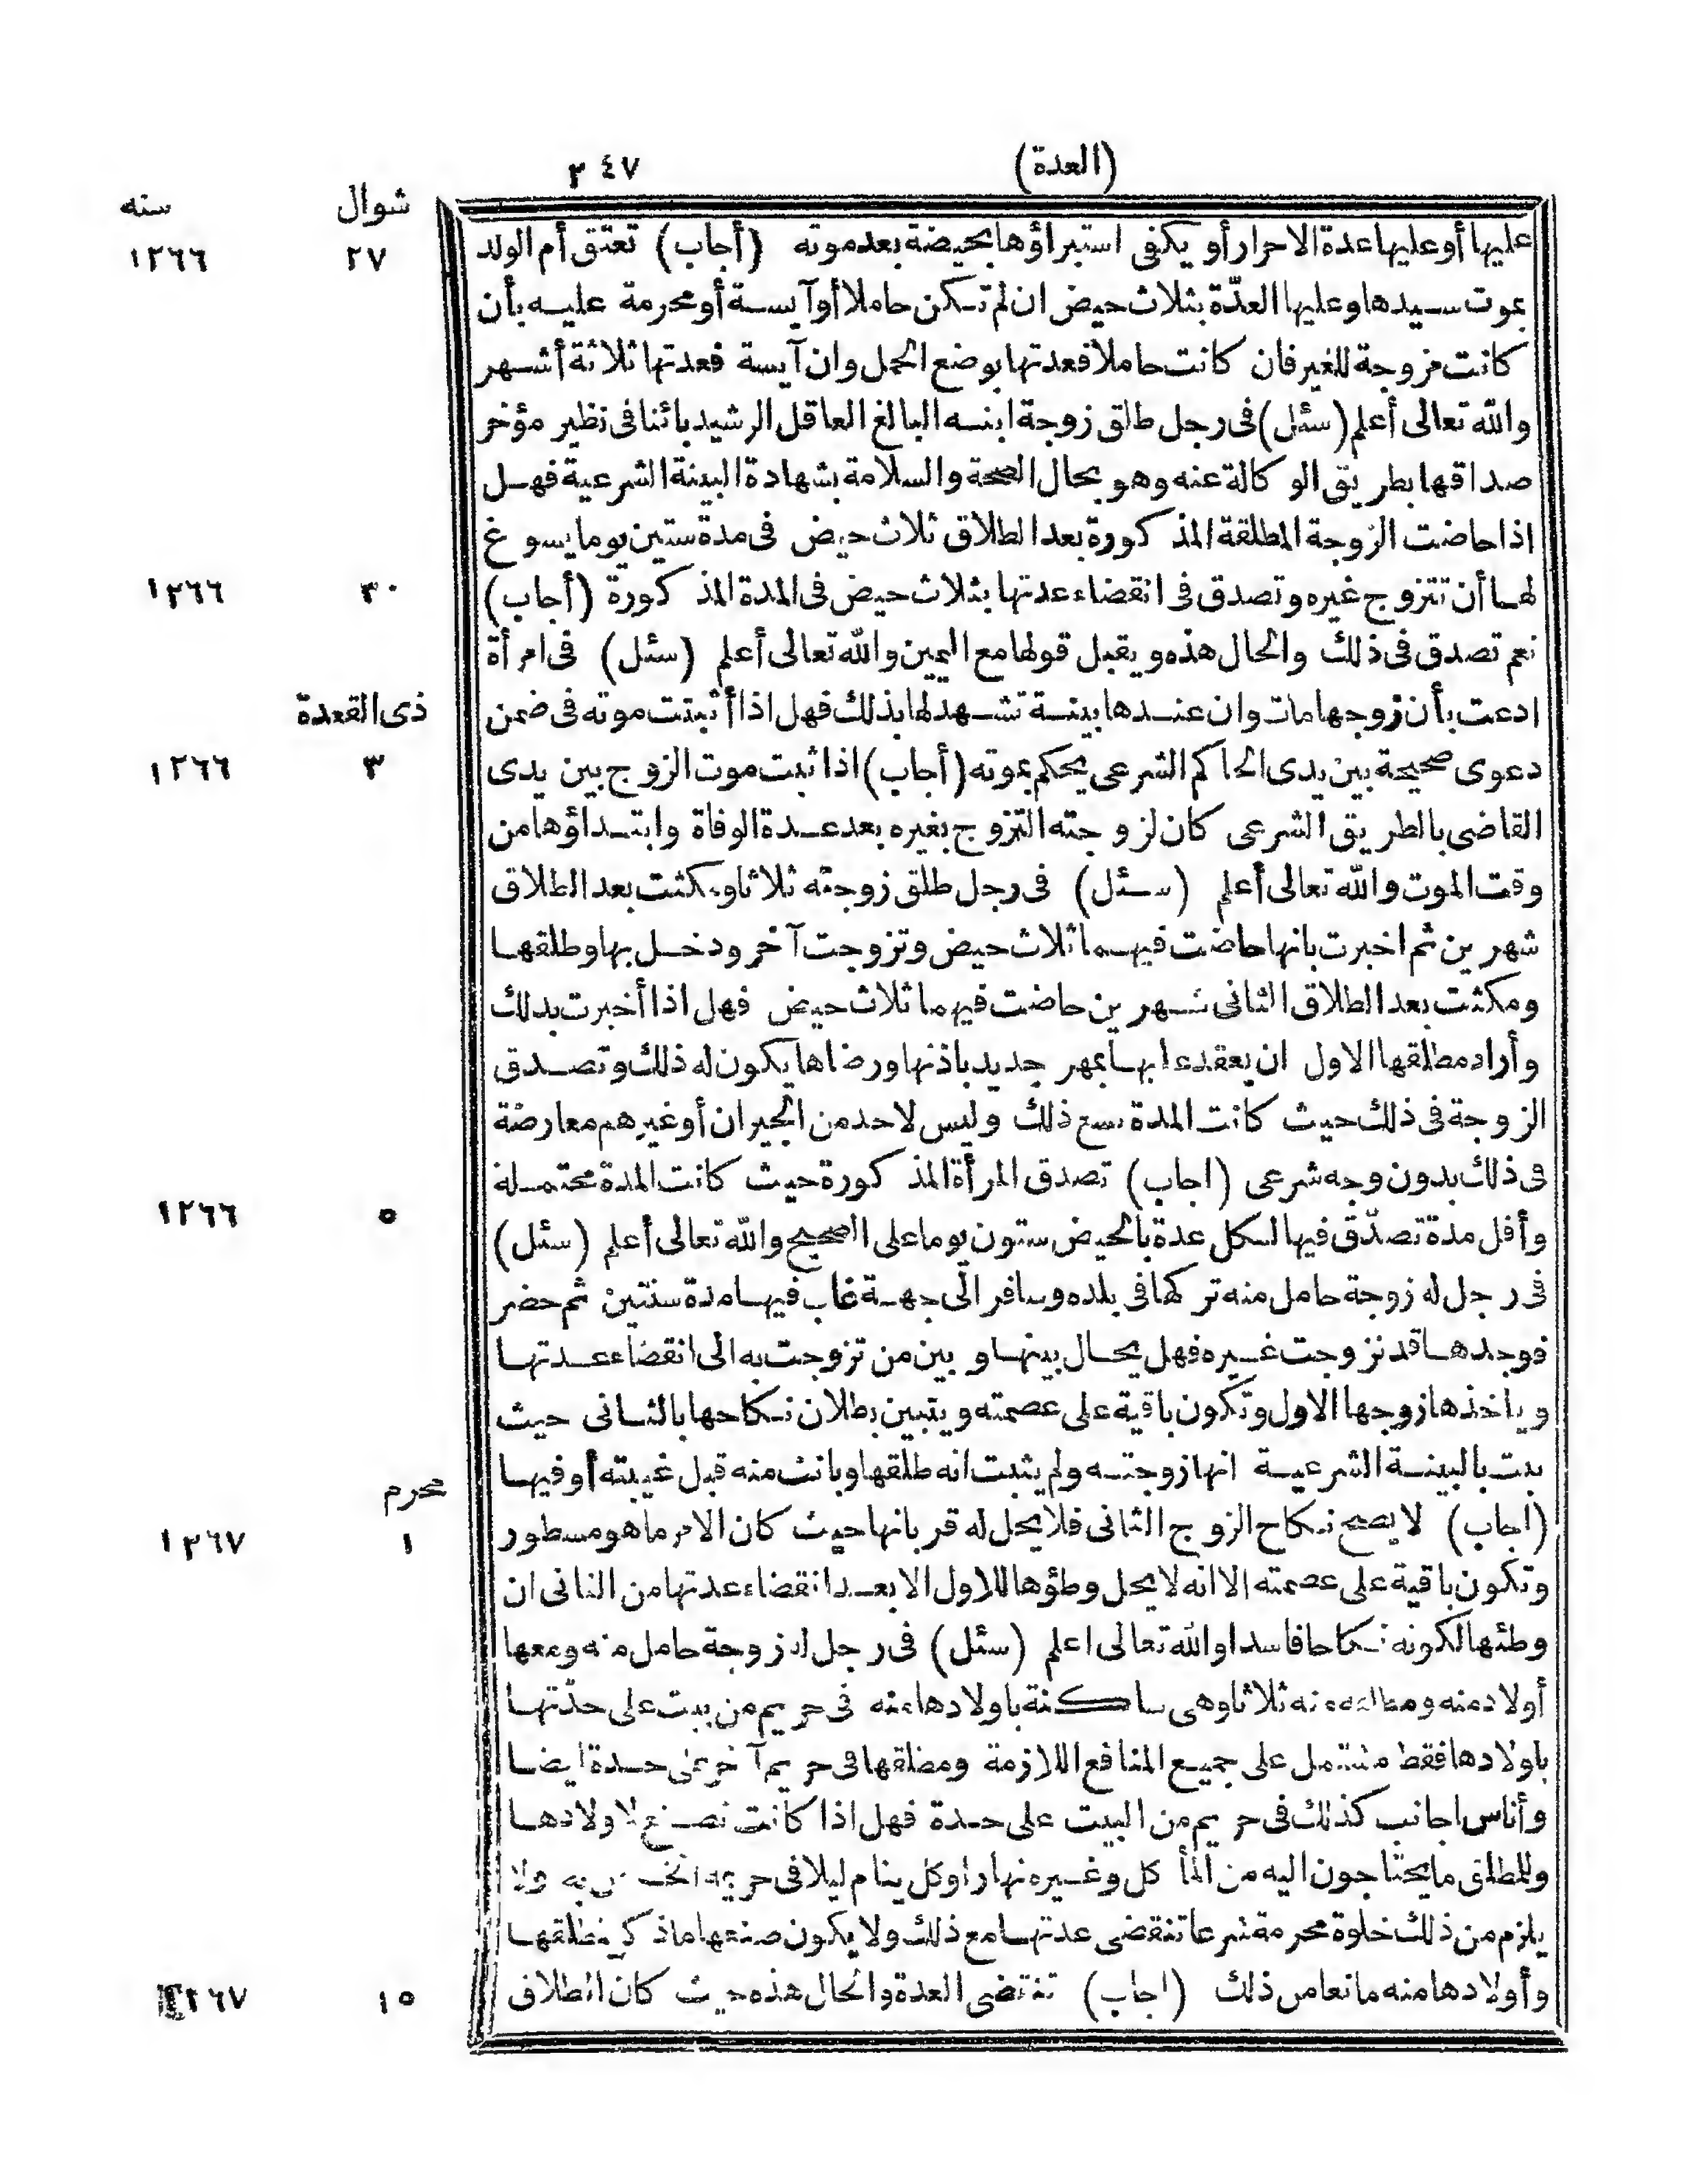 (العدة)
٣٤٧
شوال سنه
٢٧ ١٢٦٦
عليها أو عليها عدة الاحرار أو يكفى استبراؤها بحيضة بعد موته (أجاب) تعتق أم الولد
بموت سيدها وعليها العدّة بثلاث حيض ان لم تكن حاملا أو آيسة أو محرمة عليه بأن
كانت مزوجة للغير فان كانت حاملا فعدتها بوضع الحمل وان آيسة فعدتها ثلاثة أشهر
والله تعالى أعلم (سئل) فى رجل طلق زوجة ابنه البالغ العاقل الرشيد بائنا فى نظير مؤخر
صداقها بطريق الوكالة عنه وهو بحال الصحة والسلامة بشهادة البينة الشرعية فهل
اذا حاضت الزوجة المطلقة المذكورة بعد الطلاق ثلاث حيض فى مدة ستين يوما يسوغ
لها أن تتزوج غيره وتصدق فى انقضاء عدتها بثلاث حيض فى المدة المذكورة (أجاب)
٣٠ ١٢٦٦
نعم تصدق فى ذلك والحال هذه ويقبل قولها مع اليمين والله تعالى أعلم (سئل) فى امرأة
ذى القعدة
ادعت بأن زوجها مات وان عندها بينة تشهد لها بذلك فهل اذا أثبتت موته فى ضمن
دعوى صحيحة بين يدى الحاكم الشرعى يحكم بموته (أجاب) اذا ثبت موت الزوج بين يدى
٣ ١٢٦٦
القاضى بالطريق الشرعى كان لزوجته التزوج بغيره بعد عدة الوفاة وابتداؤها من
وقت الموت والله تعالى أعلم (سئل) فى رجل طلق زوجته ثلاثا ومكثت بعد الطلاق
شهرين ثم اخبرت بانها حاضت فيهما ثلاث حيض وتزوجت آخر ودخل بها وطلقها
ومكثت بعد الطلاق الثانى شهرين حاضت فيهما ثلاث حيض فهل اذا أخبرت بذلك
وأراد مطلقها الاول ان يعقد عليها بمهر جديد باذنها ورضاها يكون له ذلك وتصدق
الزوجة فى ذلك حيث كانت المدة تسع ذلك وليس لاحد من الجيران أو غيرهم معارضة
فى ذلك بدون وجه شرعى (اجاب) تصدق المرأة المذكورة حيث كانت المدة محتملة
٥ ١٢٦٦
وأقل مدة تصدّق فيها لكل عدة بالحيض ستون يوما على الصحيح والله تعالى أعلم (سئل)
فى رجل له زوجة حامل منه تركها فى بلده وسافر الى جهة غاب فيها مدة سنتين ثم حضر
فوجدها قد تزوجت غيره فهل يحال بينها وبين من تزوجت به الى انقضاء عدتها
وياخذها زوجها الاول وتكون باقية على عصمته ويتبين بطلان نكاحها بالثانى حيث
ثبت بالبينة الشرعية انها زوجته ولم يثبت انه طلقها وبانت منه قبل غيبته أو فيها
محرم
(اجاب) لا يصح نكاح الزوج الثانى فلا يحل له قربانها حيث كان الامر ما هو مسطور
١ ١٢٦٧
وتكون باقية على عصمته الا انه لا يحل وطؤها للاول الا بعد انقضاء عدتها من الثانى ان
وطئها لكونه نكاحا فاسدا والله تعالى اعلم (سئل) فى رجل له زوجة حامل منه ومعها
أولاد منه وهى ساكنة باولادها منه فى حريم من بيت على حدّتها
باولادها فقط مشتمل على جميع المنافع اللازمة ومطلقها فى حريم آخر على حدة ايضا
وأناس اجانب كذلك فى حريم من البيت على حدة فهل اذا كانت تصنع لاولادها
وللمطلق ما يحتاجون اليه من المأكل وغيره نهارا وكل ينام ليلا فى حريمه به ولا
يلزم من ذلك خلوة محرمة شرعا تنقضى عدتها مع ذلك ولا يكون صنعها ما ذكر لمطلقها
وأولادها منه مانعا من ذلك (اجاب) تنقضى العدة والحال هذه حيث كان الطلاق
١٥ ١٢٦٧